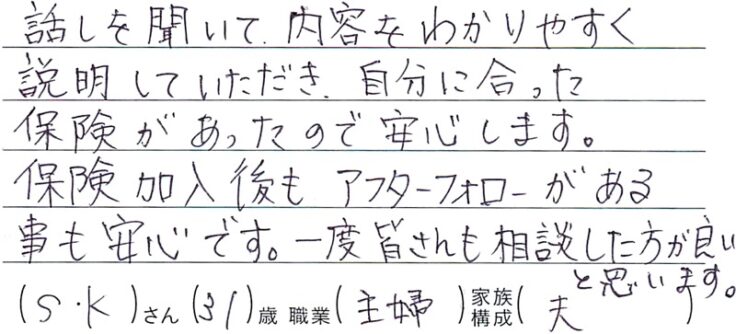 話しを聞いて、内容をわかりやすく
説明していただき、自分に合った
保険があったので安心します。
保険加入後も アフターフォローがある
事も安心です。一度皆さんも相談した方が良い
と思います。
(S・K)さん(31)歳 職業(主婦)家族構成(夫)